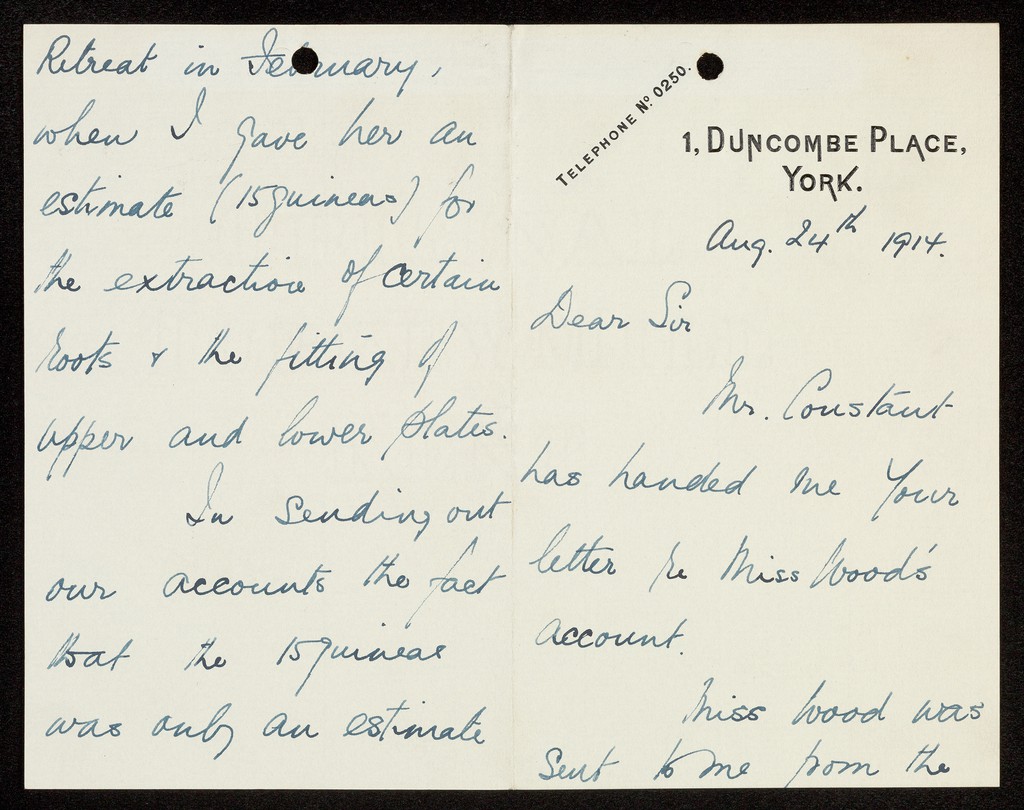 TELEPHONE Nº 0250.
1, DUNCOMBE PLACE,
YORK.
Aug. 24th 1914.
Dear Sir
Mr. Constant
has handed me your
letter re Miss Wood's
account.
Miss Wood was
sent to me from the
Retreat in February,
when I gave her an
estimate (15 guineas) for
the extraction of certain
roots & the fitting of
upper and lower plates.
In sending out
our accounts the fact
that the 15 guineas
was only an estimate